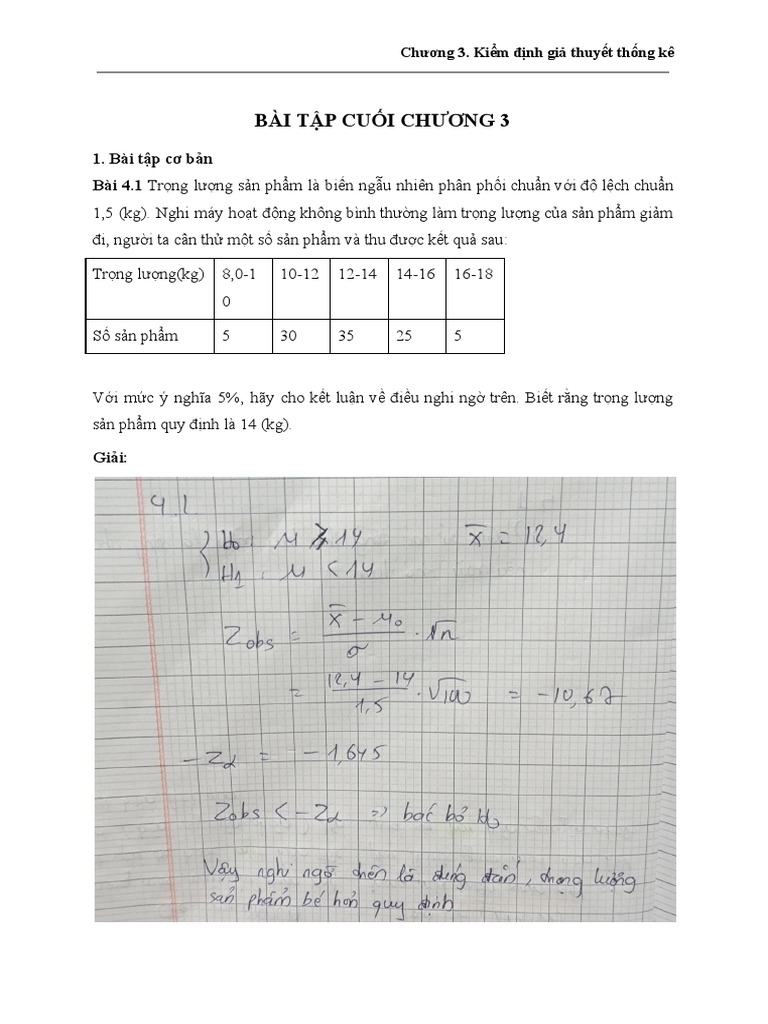 Chương 3. Kiểm định giả thuyết thống kê
BÀI TẬP CUỐI CHƯƠNG 3
1. Bài tập cơ bản
Bài 4.1 Trọng lượng sản phẩm là biến ngẫu nhiên phân phối chuẩn với độ lệch chuẩn
1,5 (kg). Nghi máy hoạt động không bình thường làm trọng lượng của sản phẩm giảm
đi, người ta cân thử một số sản phẩm và thu được kết quả sau:
Trọng lượng(kg) 8,0-1 10-12 12-14 14-16 16-18
0
Số sản phẩm 5 30 35 25 5
Với mức ý nghĩa 5%, hãy cho kết luận về điều nghi ngờ trên. Biết rằng trọng lượng
sản phẩm quy định là 14 (kg).
Giải:
4.1
H₀: μ ≥ 14 x̄ = 12,4
H₁: μ < 14
Zobs = (x̄ - μ₀)/σ · √n
= (12,4 - 14)/1,5 · √100 = -10,67
-Zα = -1,645
Zobs < -Zα => bác bỏ H₀
Vậy nghi ngờ trên là đúng đắn, trọng lượng
sản phẩm bé hơn quy định